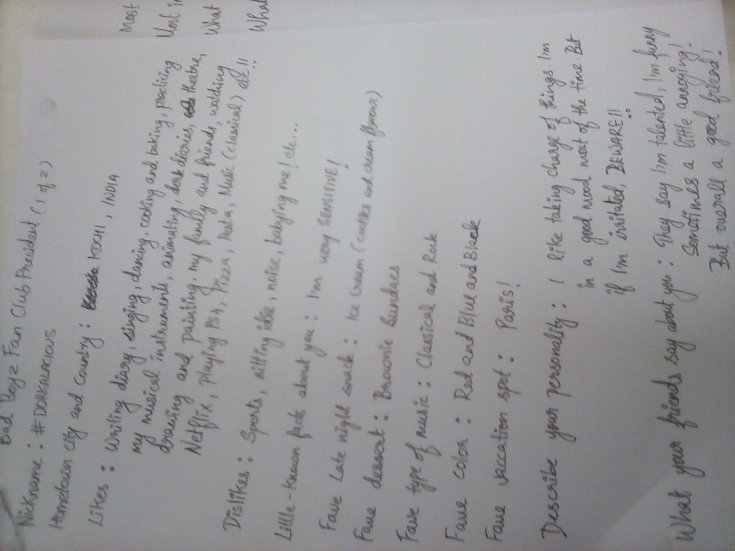 Bad Boyz Fan Club President (1 of 2)
Nickname : #DORKALACIOUS
Hometown City and Country : KOCHI, INDIA
Likes : Writing diary, singing, dancing, cooking and baking, practicing
my musical instruments, animating, dark stories, theatre,
drawing and painting, my family and friends, watching
Netflix, playing PS4, Pizza, Pasta, Music (classical) etc!!
Dislikes : Sports, sitting idle, noise, babying me! etc...
Little-Known fact about you : I'm very SENSITIVE!
Fave Late night snack : Ice Cream (cookies and cream flavour)
Fave dessert : Brownie Sundaes
Fave type of music : Classical and Rock
Fave color : Red and Blue and Black
Fave vacation spot : Paris!
Describe your personality : I like taking charge of things. I'm
in a good mood most of the time. But
if I'm irritated, BEWARE!!
What your friends say about you : They say I'm talented, I'm funny
Sometimes a little annoying!
But overall a good friend!
Most
Most i
What
What